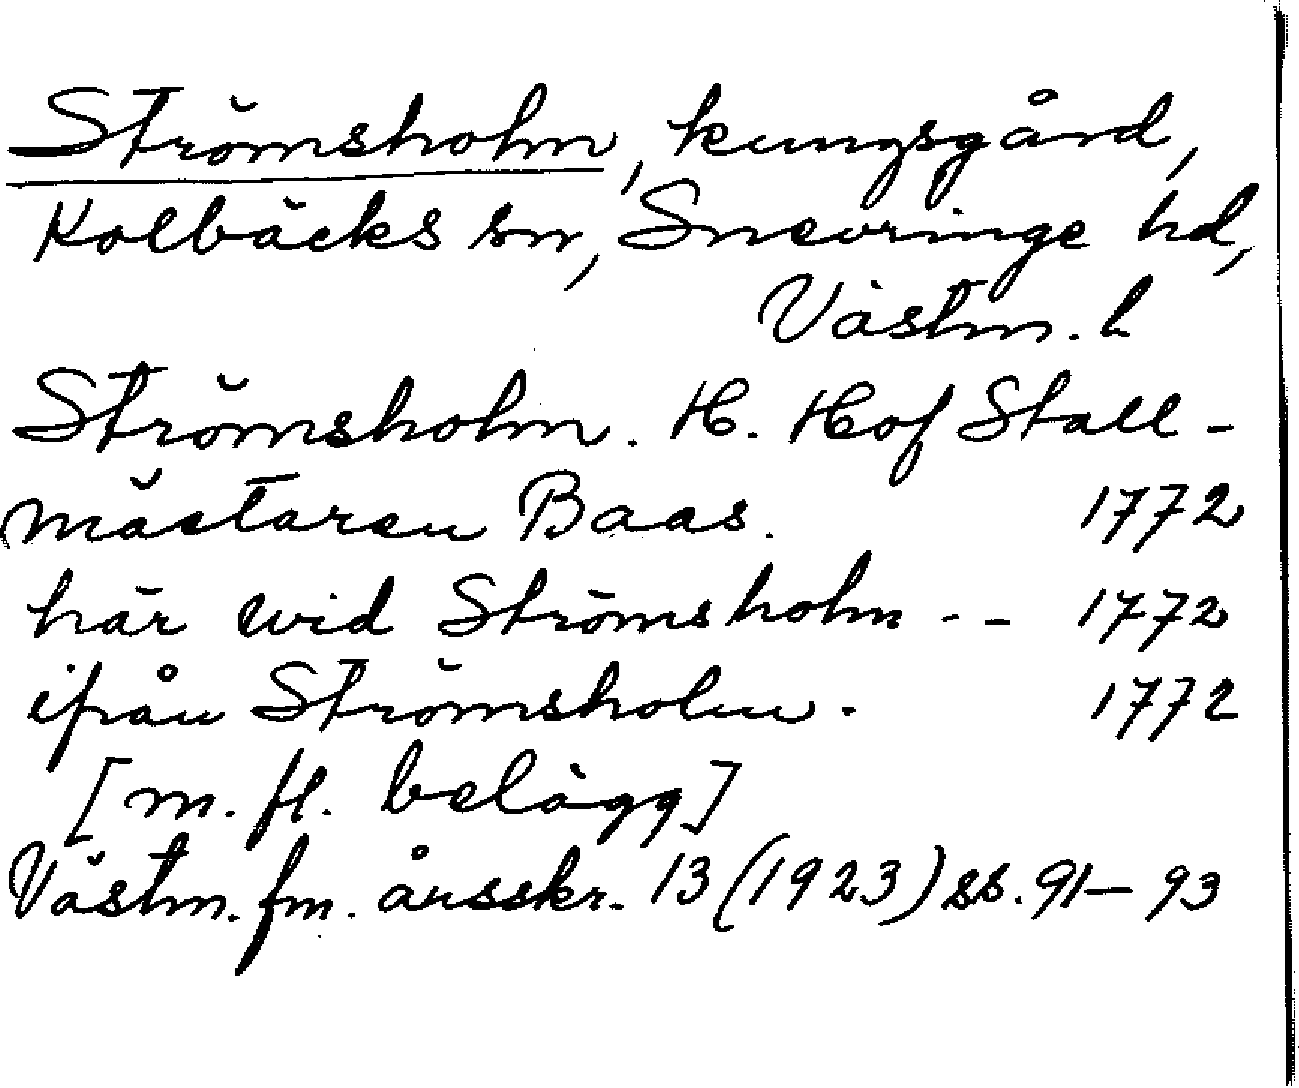 Strömsholm, kungsgård,
Kolbäcks sn, Snevringe hd,
Västm. l
Strömsholm. H. Hof Stall-
mästaren Baas. 1772
här wid Strömsholm -- 1772
ifrån Strömsholm. 1772
[m. fl. belägg]
Västm. fm. årsskr. 13 (1923) ss. 91-93